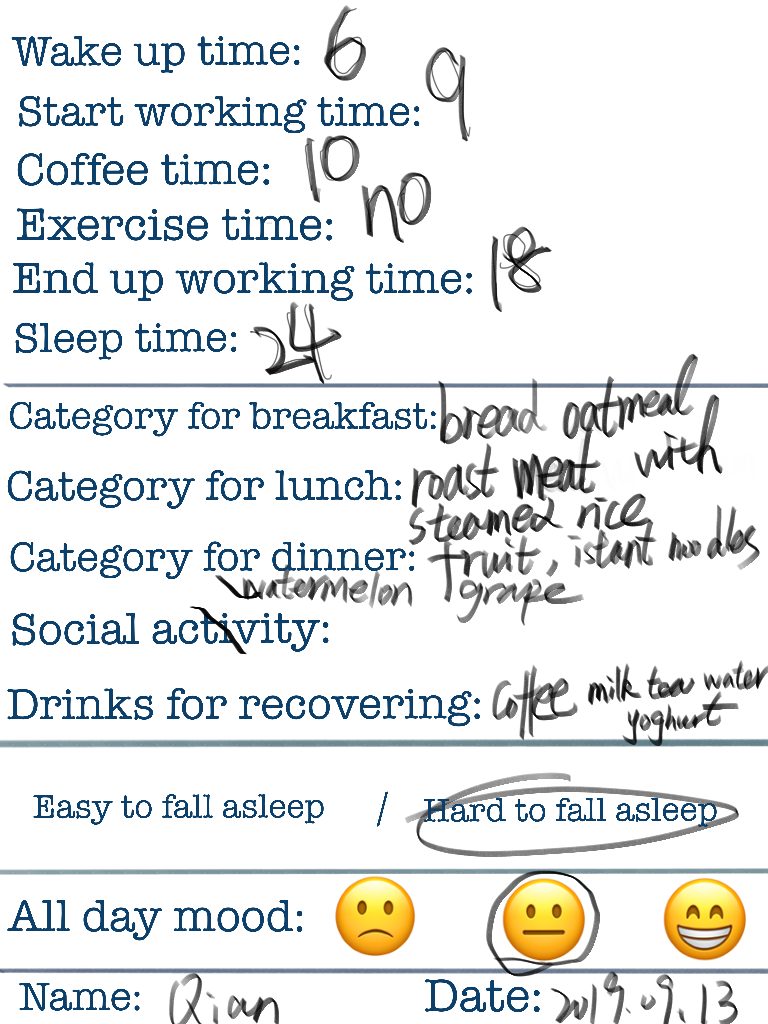 Wake up time: 6
Start working time: 9
Coffee time: 10
Exercise time: no
End up working time: 18
Sleep time: 24
Category for breakfast: bread oatmeal
Category for lunch: roast meat with
steamed rice
Category for dinner: fruit, istant noodles
watermelon grape
Social activity:
Drinks for recovering: Coffee milk tea water
yoghurt
Easy to fall asleep / Hard to fall asleep
All day mood:
Name: Qian Date: 2019.09.13